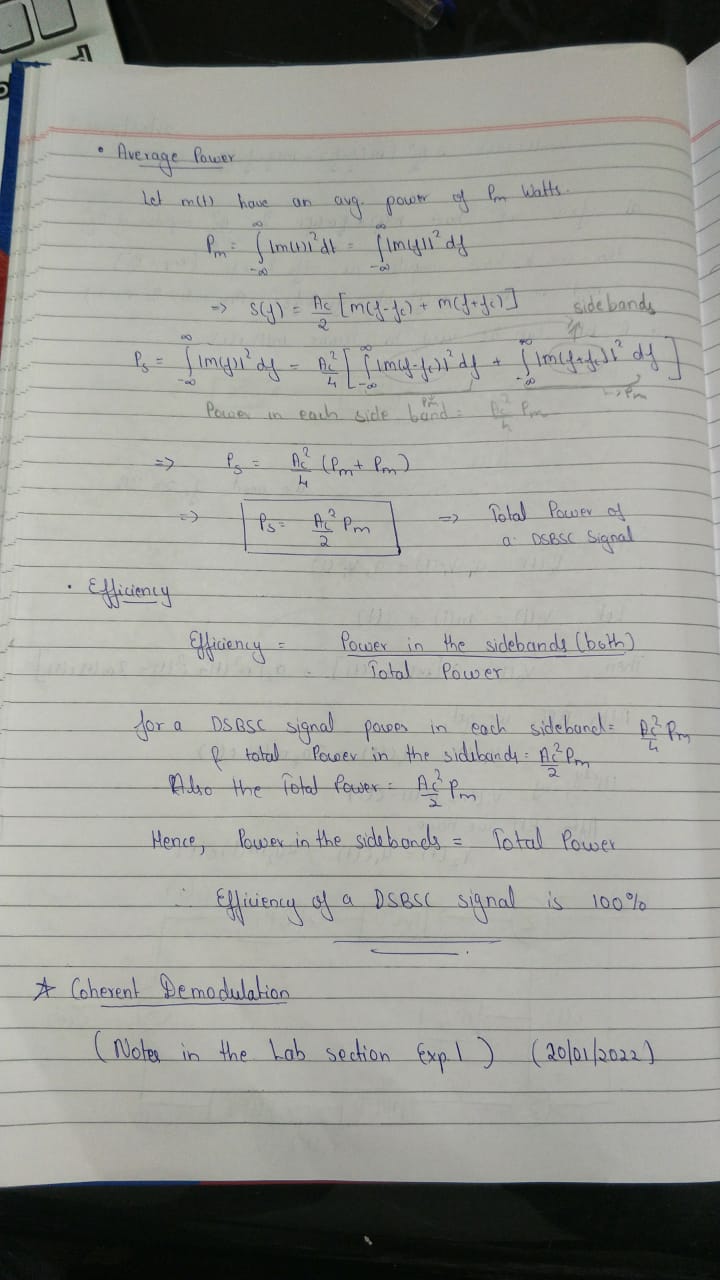 • Average Power
Let m(t) have an avg. power of Pm Watts.
Pm = ∫_{-∞}^{∞} |m(t)|² dt = ∫_{-∞}^{∞} |m(f)|² df
=> S(f) = Ac/2 [m(f-fc) + m(f+fc)] sidebands
Ps = ∫_{-∞}^{∞} |m(f)|² df = Ac²/4 [∫_{-∞}^{∞} |m(f-fc)|² df + ∫_{-∞}^{∞} |m(f+fc)|² df]
Pm ↳ Pm
Power in each side band = Ac²/4 Pm
=> Ps = Ac²/4 (Pm + Pm)
=> Ps = Ac²/2 Pm => Total Power of
a DSBSC Signal
• Efficiency
Efficiency = Power in the sidebands (both)
Total Power
for a DSBSC signal power in each sideband = Ac²/4 Pm
& total Power in the sidebands = Ac²/2 Pm
Also the Total Power = Ac²/2 Pm
Hence, Power in the sidebands = Total Power
∴ Efficiency of a DSBSC signal is 100%
☆ Coherent Demodulation
(Notes in the Lab section Exp.1) (20/01/2022)